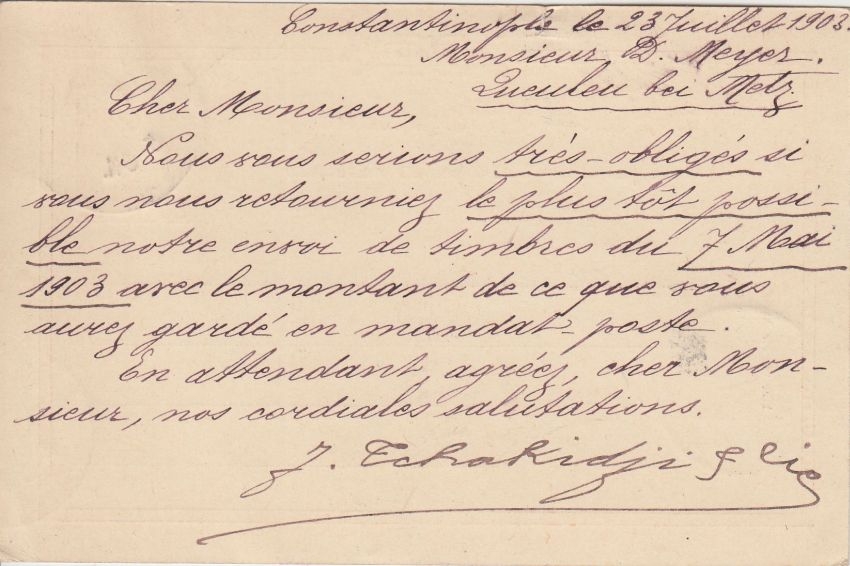 Constantinople le 23 Juillet 1903.
Monsieur D. Meyer.
Queuleu bei Metz.
Cher Monsieur,
Nous vous serions très-obligés si
vous nous retourniez le plus tôt possi-
ble notre envoi de timbres du 7 Mai
1903 avec le montant de ce que vous
aurez gardé en mandat-poste.
En attendant, agréez, cher Mon-
sieur, nos cordiales salutations.
J. Tchakidji & Cie